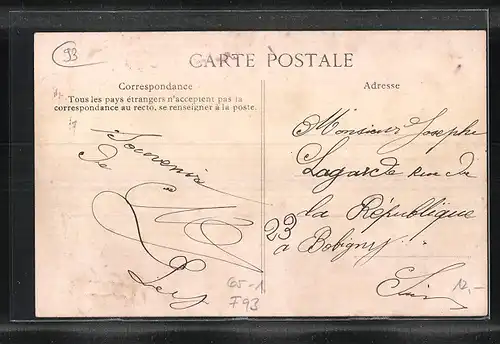 93
CARTE POSTALE
Correspondance
Tous les pays étrangers n'acceptent pas la
correspondance au recto, se renseigner à la poste.
Souvenir
de
Adresse
Monsieur Joseph
Lagarde Rue de
la République
23
à Bobigny
Seine
12,-
65-1
F93